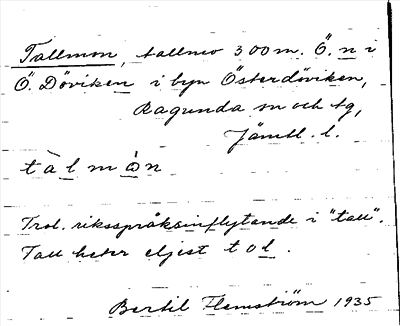 Tallmon, tallmo 300 m. Ö. n i
Ö. Döviken i byn Österdöviken,
Ragunda sn och tg,
Jämtl. l.
tàlmòn
Trol. riksspråksinflytande i "tall".
Tall heter eljest tol.
Bertil Flemström 1935